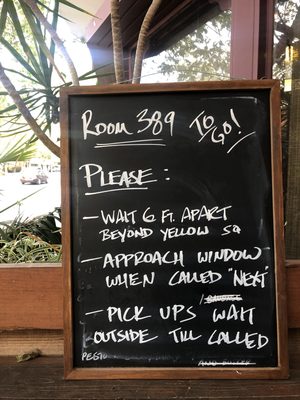 ROOM 389 TO GO!
PLEASE:
- WAIT 6 FT. APART
BEYOND YELLOW SQ
- APPROACH WINDOW
WHEN CALLED "NEXT"
- PICK UPS WAIT
OUTSIDE TILL CALLED